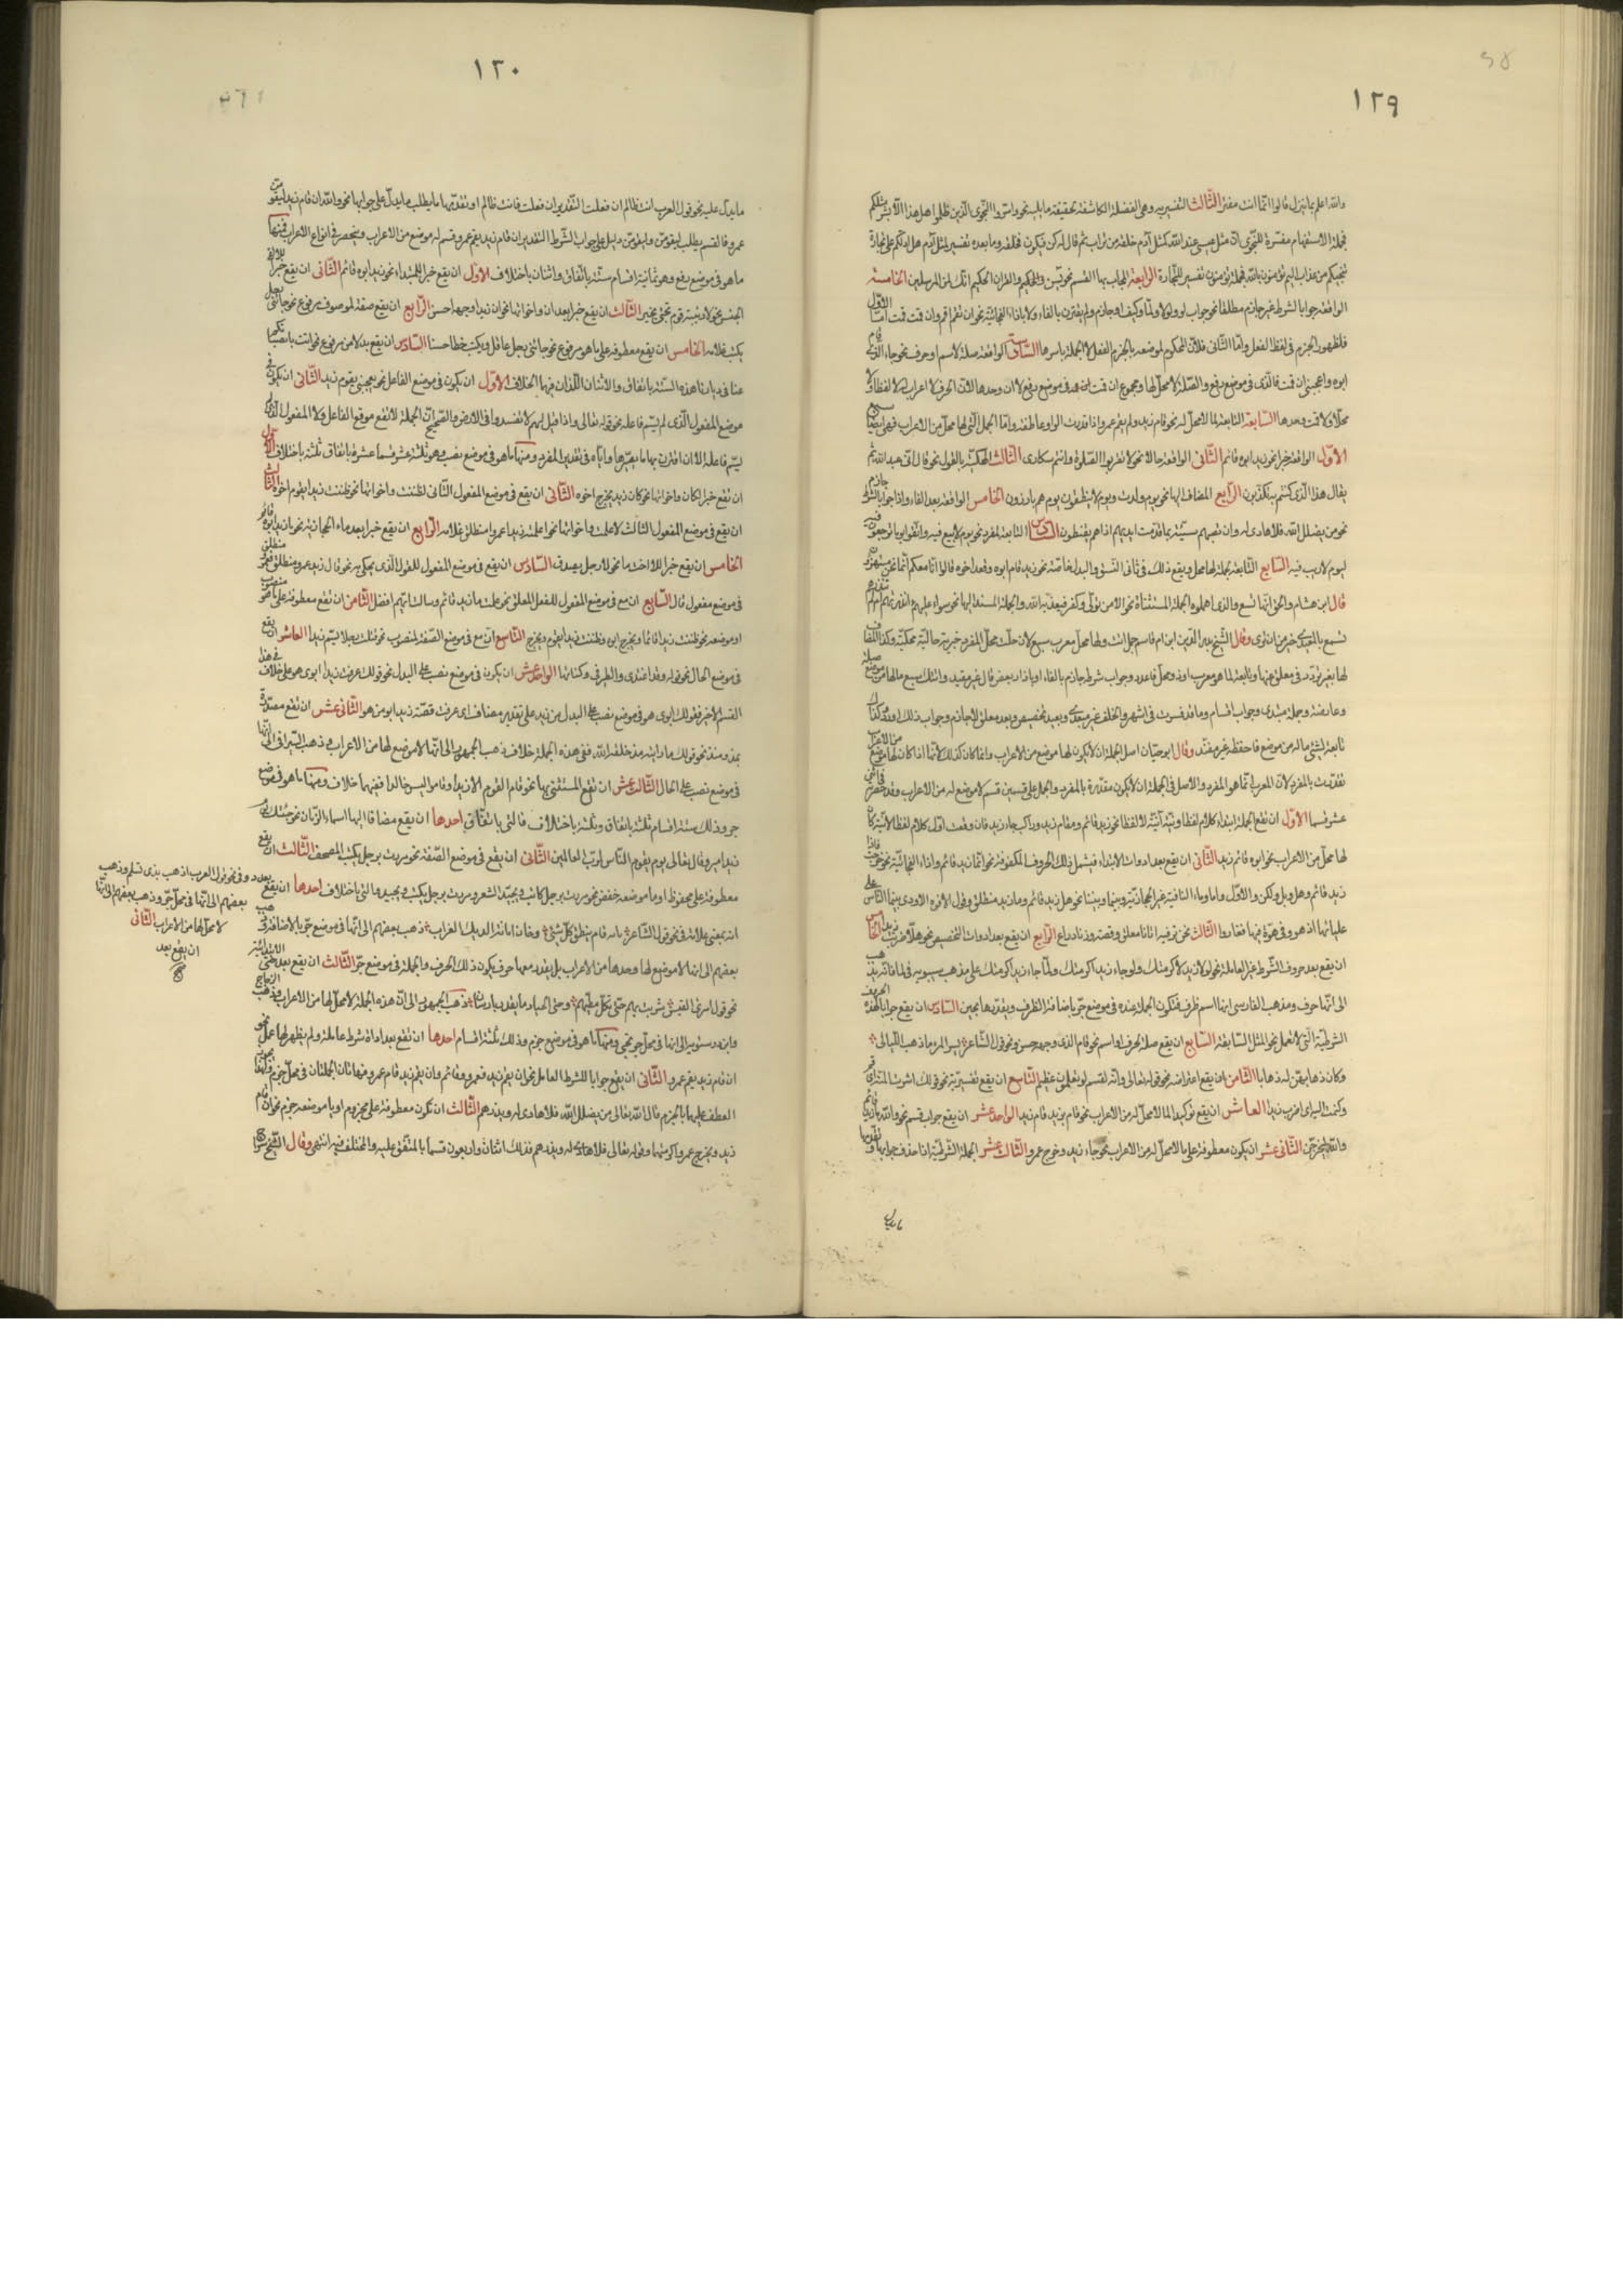 ١٢٩
والله اعلم بما ينزل قالوا انما انت مفتر الثالث التفسيرية وهى الفضلة الكاشفة لحقيقة ما تليه نحو واسروا النجوى الذين ظلموا هل هذا الا بشر مثلكم
فجملة الاستفهام مفسرة للنجوى ان مثل عيسى عند الله كمثل آدم خلقه من تراب ثم قال له كن فيكون فخلقه وما بعده تفسير لمثل آدم هل ادلكم على تجارة
تنجيكم من عذاب اليم تؤمنون بالله فجملة تؤمنون تفسير للتجارة الرابعة المجاب بها القسم نحو يس والقرآن الحكيم انك لمن المرسلين الخامسة
الواقعة جوابا لشرط غير جازم مطلقا نحو جواب لو ولولا ولما وكيف او جازم ولم يقترن بالفاء ولا باذا الفجائية نحو ان تقم اقم وان قمت قمت اما الاول
فلظهور الجزم فى لفظ الفعل واما الثانى فلان المحكوم لموضعه بالجزم الفعل لا الجملة باسرها السادسة الواقعة صلة لاسم او حرف نحو جاء الذى قام
ابوه واعجبنى ان قمت فالذى فى موضع رفع والصلة لا محل لها ومجموع ان قمت فى موضع رفع لا ان وحدها لان الحرف لا اعراب له لا لفظا ولا
محلا ولا قمت وحدها السابعة التابعة لما لا محل له نحو قام زيد ولم يقم عمرو اذا قدرت الواو عاطفة واما الجمل التى لها محل من الاعراب فهى ايضا سبع
الاول الواقعة خبرا نحو زيد ابوه قائم الثانى الواقعة حالا نحو لا تقربوا الصلوة وانتم سكارى الثالث المحكية بالقول نحو قال انى عبد الله ثم
يقال هذا الذى كنتم به تكذبون الرابع المضاف اليها نحو يوم ولدت ويوم لا ينطقون يوم هم بارزون الخامس الواقعة بعد الفاء واذا جوابا لشرط جازم
نحو من يضلل الله فلا هادى له وان تصبهم سيئة بما قدمت ايديهم اذا هم يقنطون السادس التابعة لمفرد نحو يوم لا بيع فيه واتقوا يوما ترجعون فيه
ليوم لا ريب فيه السابع التابعة لجملة لها محل ويقع ذلك فى ثانى النسق والبدل خاصة نحو زيد قام ابوه وقعد اخوه قالوا انا معكم انما نحن مستهزؤن
قال ابن هشام والحق انها تسع والذى اهملوه الجملة المستثناة نحو الا من تولى وكفر فيعذبه الله والجملة المسند اليها نحو سواء عليهم ءانذرتهم ام لم تنذرهم
تسمع بالمعيدى خير من ان تراه وقال الشيخ بدر الدين ابن ام قاسم
قال ابو حيان اصل الجملة ان لا يكون لها موضع من الاعراب وانما كان كذلك لانها اذا كان لها موضع من الاعراب
تقدرت بالمفرد لان المعرب انما هو المفرد والاصل فى الجملة ان لا تكون مقدرة بالمفرد والجمل على قسمين قسم لا موضع له من الاعراب
عشر قسما الاول ان تقع الجملة ابتداء كلام لفظا ونية او نية لا لفظا نحو زيد قائم وقام زيد وراكبا جاء زيد فان وقعت اول كلام لفظا لا نية كان
لها محل من الاعراب نحو ابوه قائم زيد الثانى ان يقع بعد ادوات الابتداء فيشمل ذلك الحروف المكفوفة نحو انما زيد قائم واذا الفجائية نحو خرجت فاذا
زيد قائم وهل وبل ولكن والا واما وما النافية غير الحجازية وبينما وبينا نحو هل زيد قائم وما زيد منطلق وقول الافوه الاودى بينما الناس على
عليائها اذ هووا فى هوة فيها فغاروا الثالث نحن نرقبه اتانا معلق وفضة وزناد راع الرابع ان يقع بعد ادوات التخصيص نحو هلا ضربت زيدا الخامس
ان يقع بعد حروف الشرط غير العاملة نحو لولا زيد لاكرمتك ولو جاء زيد اكرمتك ولما جاء زيد اكرمتك على مذهب سيبويه
الى انها حرف ومذهب الفارسى انها اسم ظرف فتكون الجملة عنده فى موضع جر باضافة الظرف ويقدرها بحين السادس ان يقع جوابا لهذه الحروف
الشرطية التى لا تعمل نحو المثل السابقة السابع ان يقع صلة لحرف او اسم نحو قام الذى وجهه حسن ونحو قول الشاعر يسر المرء ما ذهب الليالى
وكان ذهابهن له ذهابا الثامن ان يقع اعتراضية نحو قوله تعالى وانه لقسم لو تعلمون عظيم التاسع ان يقع تفسيرية نحو قولك اشرت اليه اى قم
وكتبت اليه اى اضرب زيدا العاشر ان يقع توكيدا لما لا محل له من الاعراب نحو قام زيد قام زيد الواحد عشر ان يقع جواب قسم نحو والله ما زيد قائم
والله ليخرجن الثانى عشر ان يكون معطوفة على ما لا محل له من الاعراب نحو جاء زيد وخرج عمرو الثالث عشر الجملة الشرطية اذا حذف جوابها وتقدمها
ما يدل
١٢٠
ما يدل عليه نحو قول العرب انت ظالم ان فعلت التقدير ان فعلت فانت ظالم او تقدمها ما يطلب ما يدل على جوابها نحو والله ان قام زيد ليقومن
عمرو فالقسم يطلب ليقومن وليقومن دليل على جواب الشرط التقدير ان قام زيد يقم عمرو وقسم له موضع من الاعراب وينحصر فى انواع الاعراب فمنها
ما هو فى موضع رفع وهو ثمانية اقسام ستة باتفاق واثنان باختلاف الاول ان يقع خبرا للمبتداء نحو زيد ابوه قائم الثانى ان يقع خبرا للا لنفى
الجنس نحو الثالث ان يقع خبرا بعد ان واخواتها نحو ان زيدا وجهه حسن الرابع ان يقع صفة لموصوف مرفوع نحو جائنى رجل
يكتب غلامه الخامس ان يقع معطوفة على ما هو مرفوع نحو جائنى رجل عاقل ويكتب خطا حسنا السادس ان يقع بدلا من مرفوع
هذه الستة باتفاق والاثنان اللذان فيها الخلاف الاول ان يكون فى موضع الفاعل نحو يعجبنى يقوم زيد الثانى ان يكون فى
موضع المفعول الذى لم يسم فاعله نحو قوله تعالى واذا قيل لهم لا تفسدوا فى الارض والصحيح ان الجملة لا تقع موقع الفاعل ولا المفعول الذى لم
يسم فاعله الا ان اقترن بها ما يصيرها واياه فى تقدير المفرد ومنها ما هو فى موضع نصب وهو ثلثة عشر قسما عشرة باتفاق ثلثة باختلاف الاول
ان تقع خبرا لكان واخواتها نحو كان زيد يخرج اخوه الثانى ان يقع فى موضع المفعول الثانى لظننت واخواتها نحو ظننت زيدا يقوم اخوه الثالث
ان يقع فى موضع المفعول الثالث لاعلمت واخواتها نحو اعلمت زيدا عمروا منطلق غلامه الرابع ان يقع خبرا بعد ماء الحجازية نحو ما زيد ابوه قائم
الخامس ان يقع خبرا للا اخت ما نحو لا رجل يصدق السادس ان يقع فى موضع المفعول للقول الذى يحكى به نحو قال زيد عمرو منطلق
فى موضع مفعول قال السابع ان يقع فى موضع المفعول للفعل المعلق نحو علمت ما زيد قائم وسالت ايهم افضل الثامن ان تقع معطوفة على ما هو منصوب
او موضعه نحو ظننت زيدا قائما ويخرج ابوه وظننت زيدا يقوم ويخرج التاسع ان يقع فى موضع الصفة لمنصوب العاشر ان يقع
فى موضع الحال نحو قوله وقد اغتدى والطير فى وكناتها الواحد عشر ان يكون فى موضع نصب على البدل نحو قولك عرفت زيدا ابو من هو على خلاف فى هذا
القسم الاخير فقولك ابو من هو فى موضع نصب على البدل من زيد على تقدير مضاف اى عرفت قصة زيد ابو من هو الثانى عشر ان تقع مصدرة
بمذ ومنذ نحو قولك ما رايته مذ خلقه الله ففى هذه الجملة خلاف ذهب الجمهور الى انها لا موضع لها من الاعراب وذهب السيرافى الى انها
فى موضع نصب على الحال الثالث عشر ان تقع المستثنى بها نحو قام القوم لا يكون زيدا وقاموا ليس خالدا ففيهما خلاف ومنها ما هو فى موضع
جر وذلك ستة اقسام ثلثة باتفاق وثلثة باختلاف فالتى باتفاق احدها ان يقع مضافا اليها اسماء الزمان نحو جئتك يوم
زيد امير وقال تعالى يوم يقوم الناس لرب العالمين الثانى ان يقع فى موضع الصفة نحو مررت برجل يكتب المصحف الثالث ان يقع
معطوفة على مخفوظ او ما موضعه خفض نحو مررت برجل كاتب ويجيد الشعر ومررت برجل يكتب ويجيد والتى باختلاف احدها ان يقع بعد
ذهب بعضهم الى انها فى موضع جر بالاضافة وذهب
بعضهم الى انها لا موضع لها الثالث ان يقع بعد حتى الابتدائية
نحو قول امرئ القيس ذهب الجمهور الى ان هذه الجملة لا محل لها من الاعراب وذهب الزجاج
وابن درستويه الى انها فى محل جر بحتى ومنها ما هو فى موضع جزم وذلك ثلثة اقسام احدها ان تقع بعد اداة شرط عاملة ولم يظهر لها عمل نحو
ان قام زيد يقم عمرو الثانى ان يقع جوابا للشرط العامل نحو ان يقم زيد فعمرو قائم وان يقم زيد قام عمرو فهاتان الجملتان فى محل جزم
العطف عليهما بالجزم قال الله تعالى من يضلل الله فلا هادى له ويذرهم الثالث ان تكون معطوفة على مجزوم او ما موضعه جزم نحو ان قام
زيد ويخرج عمرو اكرمتهما وقوله تعالى فلا هادى له ويذرهم فذلك اثنان واربعون قسما بالمتفق عليه والمختلف فيه انتهى وقال الشيخ
ذو فى نحو قول العرب اذهب بذى تسلم وذهب
بعضهم الى انها فى محل جر وذهب بعضهم الى انها
لا محل لها من الاعراب الثانى
ان يقع بعد